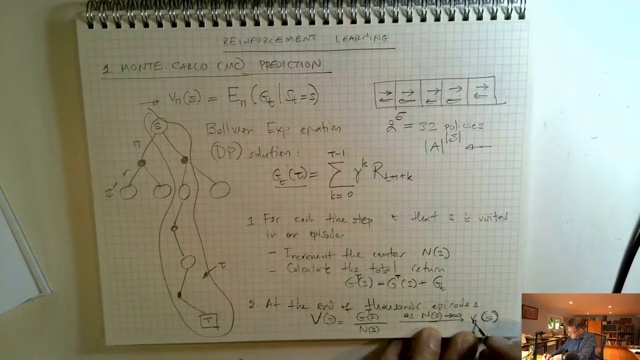 REINFORCEMENT LEARNING
1 MONTE CARLO (MC) PREDICTION
→ Vπ(s) = Eπ(Gt | St=s)
→ → → → →
← ← ← ← ←
2^5 = 32 policies
|A|^|S| ←
S
π
r
s'
Bellman Exp equation
(DP) solution:
Gt(τ) = Σ γ^k Rt+1+k
T-1
k=0
1. For each time step t that s is visited
in an episode
- Increment the counter N(s)
- Calculate the total return
G^τ(s) = G^τ(s) + Gt
τ
T
2. At the end of thousands episodes
V(s) = G(s)/N(s) as N(s)→∞ → v(s)